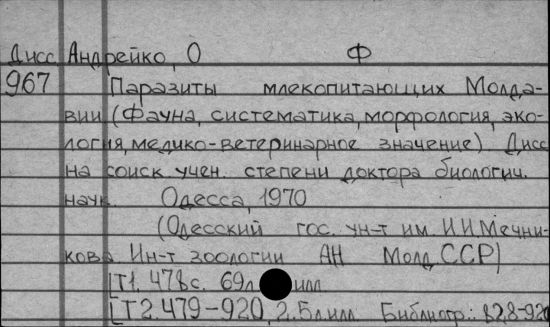 Дисс. Андрейко, О Ф
967 Паразиты млекопитающих Молда-
вии (Фауна, систематика, морфология, эко-
логия, медико-ветеринарное значение) Дисс
на соиск учен. степени доктора биологич.
наук. Одесса, 1970
(Одесский гос. ун-т им. И.И.Мечни-
кова Ин-т зоологии АН Молд ССР)
[Т1. 478с. 69л илл
[Т2. 479-920, 2.5л.илл. Библиогр.: 828-920